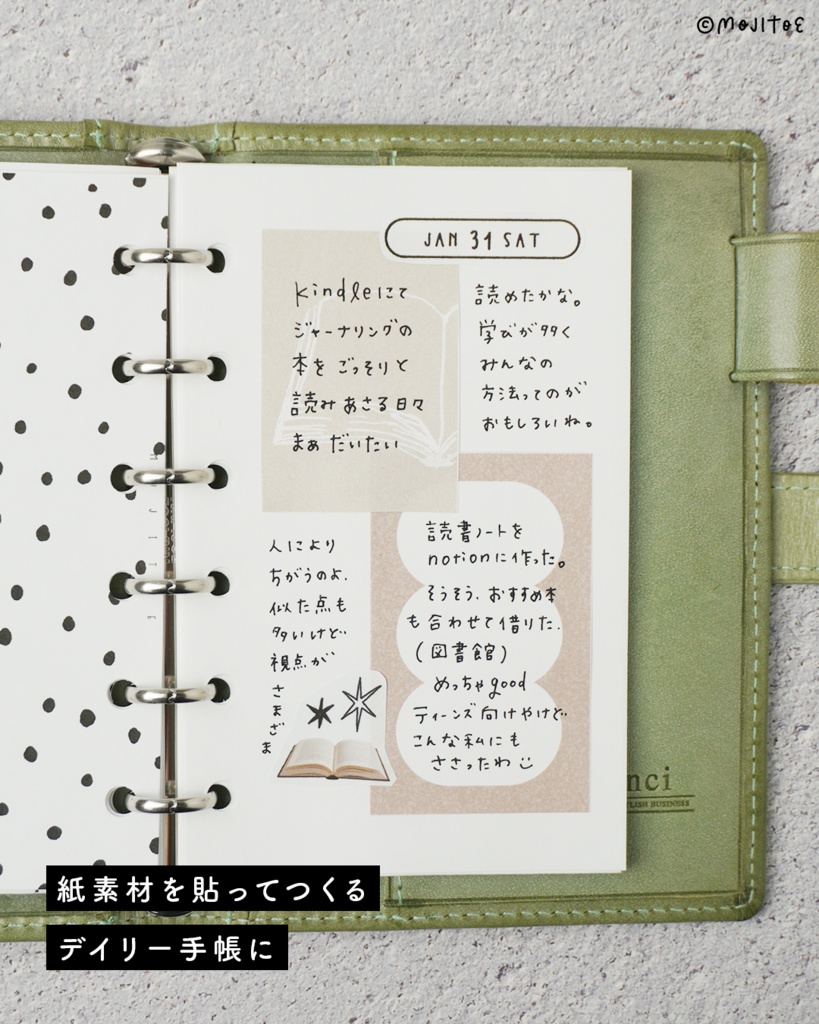 ©MOJITOE
JAN 31 SAT
Kindleにて
ジャーナリングの
本を ごっそりと
読みあさる日々
まぁ だいたい
読めたかな。
学びが多く
みんなの
方法ってのが
おもしろいね。
人により
ちがうのよ.
似た点も
多いけど..
視点が
さまざま
読書ノートを
notionに作った。
そうそう、おすすめ本
も合わせて借りた.
(図書館)
めっちゃgood
ティーンズ向けやけど..
こんな私にも
ささったわ
nci
LISH BUSINESS
紙素材を貼ってつくる
デイリー手帳に